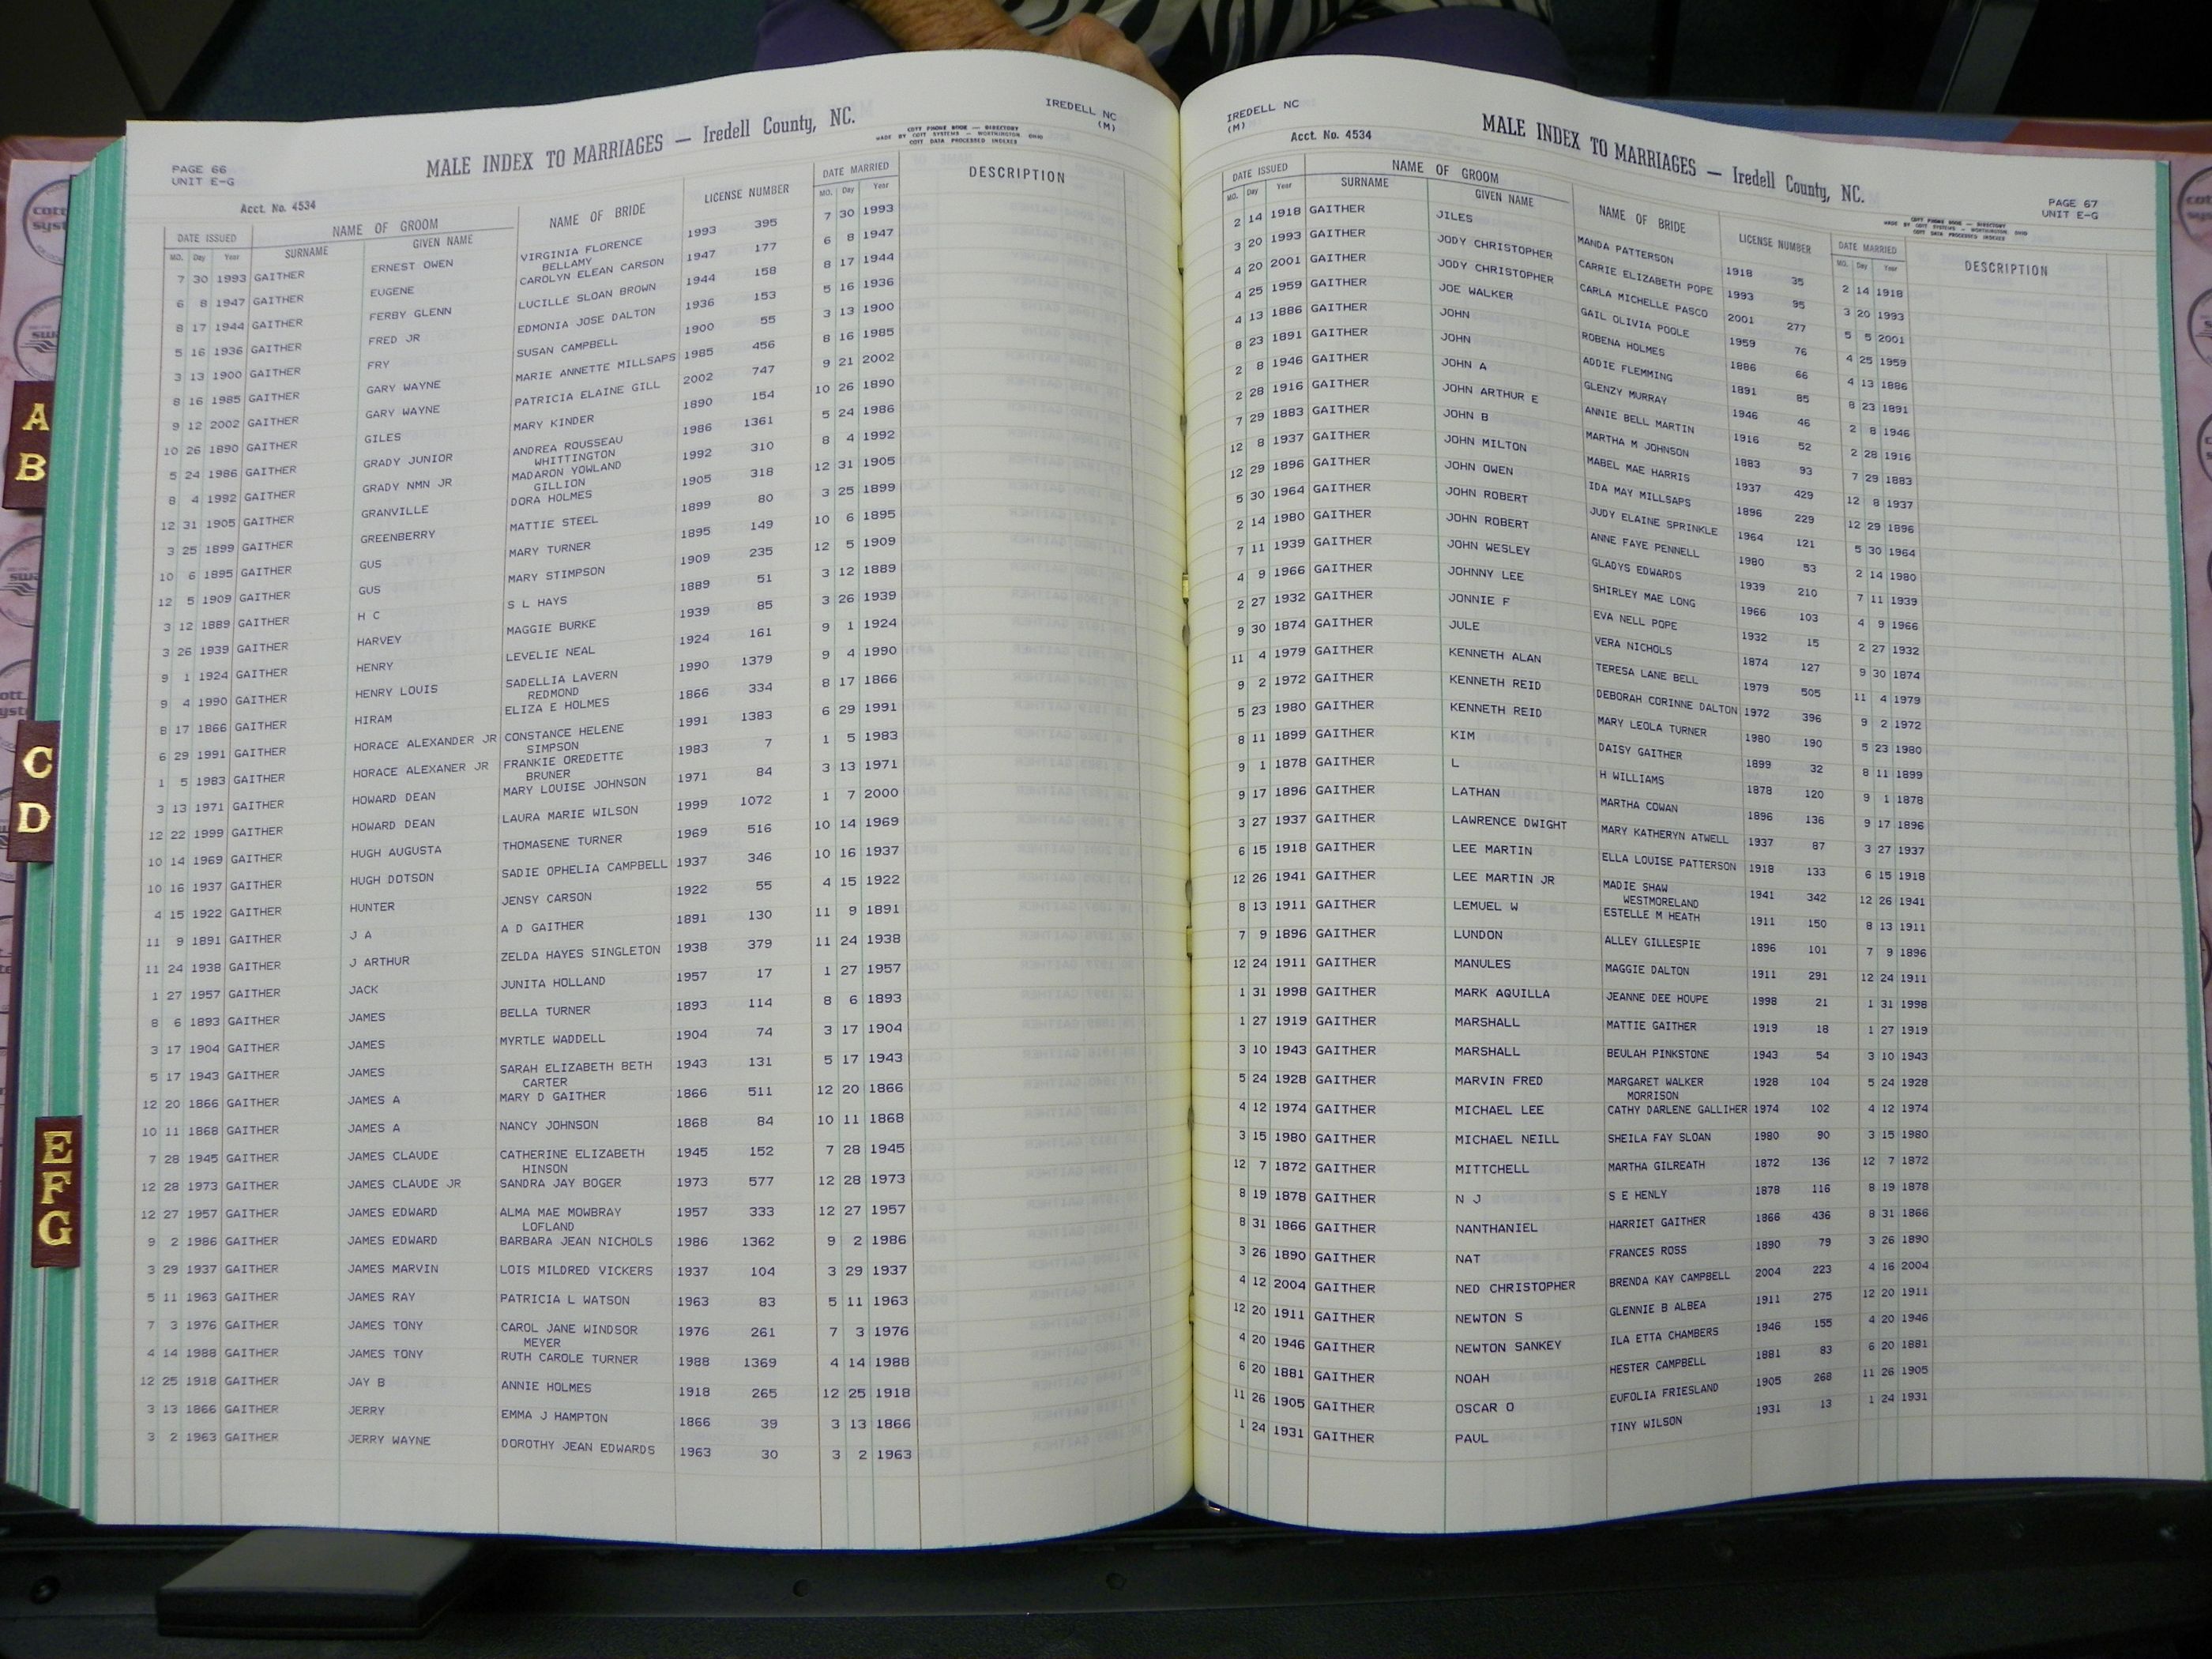 IREDELL NC
(M)
MALE INDEX TO MARRIAGES — Iredell County, NC.
COTT PHONE BOOK — DIRECTORY
MADE BY COTT SYSTEMS — WORTHINGTON, OHIO
COTT DATA PROCESSED INDEXES
PAGE 66
UNIT E-G
Acct. No. 4534
DATE ISSUED NAME OF GROOM NAME OF BRIDE LICENSE NUMBER DATE MARRIED DESCRIPTION
MO. Day Year SURNAME GIVEN NAME MO. Day Year
7 30 1993 GAITHER ERNEST OWEN VIRGINIA FLORENCE 1993 395 7 30 1993
BELLAMY
6 8 1947 GAITHER EUGENE CAROLYN ELEAN CARSON 1947 177 6 8 1947
8 17 1944 GAITHER FERBY GLENN LUCILLE SLOAN BROWN 1944 158 8 17 1944
5 16 1936 GAITHER FRED JR EDMONIA JOSE DALTON 1936 153 5 16 1936
3 13 1900 GAITHER FRY SUSAN CAMPBELL 1900 55 3 13 1900
8 16 1985 GAITHER GARY WAYNE MARIE ANNETTE MILLSAPS 1985 456 8 16 1985
9 12 2002 GAITHER GARY WAYNE PATRICIA ELAINE GILL 2002 747 9 21 2002
10 26 1890 GAITHER GILES MARY KINDER 1890 154 10 26 1890
5 24 1986 GAITHER GRADY JUNIOR ANDREA ROUSSEAU 1986 1361 5 24 1986
WHITTINGTON
8 4 1992 GAITHER GRADY NMN JR MADARON YOWLAND 1992 310 8 4 1992
GILLION
12 31 1905 GAITHER GRANVILLE DORA HOLMES 1905 318 12 31 1905
3 25 1899 GAITHER GREENBERRY MATTIE STEEL 1899 80 3 25 1899
10 6 1895 GAITHER GUS MARY TURNER 1895 149 10 6 1895
12 5 1909 GAITHER GUS MARY STIMPSON 1909 235 12 5 1909
3 12 1889 GAITHER H C S L HAYS 1889 51 3 12 1889
3 26 1939 GAITHER HARVEY MAGGIE BURKE 1939 85 3 26 1939
9 1 1924 GAITHER HENRY LEVELIE NEAL 1924 161 9 1 1924
9 4 1990 GAITHER HENRY LOUIS SADELLIA LAVERN 1990 1379 9 4 1990
REDMOND
8 17 1866 GAITHER HIRAM ELIZA E HOLMES 1866 334 8 17 1866
6 29 1991 GAITHER HORACE ALEXANDER JR CONSTANCE HELENE 1991 1383 6 29 1991
SIMPSON
1 5 1983 GAITHER HORACE ALEXANER JR FRANKIE OREDETTE 1983 7 1 5 1983
BRUNER
3 13 1971 GAITHER HOWARD DEAN MARY LOUISE JOHNSON 1971 84 3 13 1971
12 22 1999 GAITHER HOWARD DEAN LAURA MARIE WILSON 1999 1072 1 7 2000
10 14 1969 GAITHER HUGH AUGUSTA THOMASENE TURNER 1969 516 10 14 1969
10 16 1937 GAITHER HUGH DOTSON SADIE OPHELIA CAMPBELL 1937 346 10 16 1937
4 15 1922 GAITHER HUNTER JENSY CARSON 1922 55 4 15 1922
11 9 1891 GAITHER J A A D GAITHER 1891 130 11 9 1891
11 24 1938 GAITHER J ARTHUR ZELDA HAYES SINGLETON 1938 379 11 24 1938
1 27 1957 GAITHER JACK JUNITA HOLLAND 1957 17 1 27 1957
8 6 1893 GAITHER JAMES BELLA TURNER 1893 114 8 6 1893
3 17 1904 GAITHER JAMES MYRTLE WADDELL 1904 74 3 17 1904
5 17 1943 GAITHER JAMES SARAH ELIZABETH BETH 1943 131 5 17 1943
CARTER
12 20 1866 GAITHER JAMES A MARY D GAITHER 1866 511 12 20 1866
10 11 1868 GAITHER JAMES A NANCY JOHNSON 1868 84 10 11 1868
7 28 1945 GAITHER JAMES CLAUDE CATHERINE ELIZABETH 1945 152 7 28 1945
HINSON
12 28 1973 GAITHER JAMES CLAUDE JR SANDRA JAY BOGER 1973 577 12 28 1973
12 27 1957 GAITHER JAMES EDWARD ALMA MAE MOWBRAY 1957 333 12 27 1957
LOFLAND
9 2 1986 GAITHER JAMES EDWARD BARBARA JEAN NICHOLS 1986 1362 9 2 1986
3 29 1937 GAITHER JAMES MARVIN LOIS MILDRED VICKERS 1937 104 3 29 1937
5 11 1963 GAITHER JAMES RAY PATRICIA L WATSON 1963 83 5 11 1963
7 3 1976 GAITHER JAMES TONY CAROL JANE WINDSOR 1976 261 7 3 1976
MEYER
4 14 1988 GAITHER JAMES TONY RUTH CAROLE TURNER 1988 1369 4 14 1988
12 25 1918 GAITHER JAY B ANNIE HOLMES 1918 265 12 25 1918
3 13 1866 GAITHER JERRY EMMA J HAMPTON 1866 39 3 13 1866
3 2 1963 GAITHER JERRY WAYNE DOROTHY JEAN EDWARDS 1963 30 3 2 1963
IREDELL NC
(M)
Acct. No. 4534
MALE INDEX TO MARRIAGES — Iredell County, NC.
PAGE 67
UNIT E-G
COTT PHONE BOOK — DIRECTORY
MADE BY COTT SYSTEMS — WORTHINGTON, OHIO
COTT DATA PROCESSED INDEXES
DATE ISSUED NAME OF GROOM NAME OF BRIDE LICENSE NUMBER DATE MARRIED DESCRIPTION
MO. Day Year SURNAME GIVEN NAME MO. Day Year
2 14 1918 GAITHER JILES MANDA PATTERSON 1918 35 2 14 1918
3 20 1993 GAITHER JODY CHRISTOPHER CARRIE ELIZABETH POPE 1993 95 3 20 1993
4 20 2001 GAITHER JODY CHRISTOPHER CARLA MICHELLE PASCO 2001 277 5 5 2001
4 25 1959 GAITHER JOE WALKER GAIL OLIVIA POOLE 1959 76 4 25 1959
4 13 1886 GAITHER JOHN ROBENA HOLMES 1886 66 4 13 1886
8 23 1891 GAITHER JOHN ADDIE FLEMMING 1891 85 8 23 1891
2 8 1946 GAITHER JOHN A GLENZY MURRAY 1946 46 2 8 1946
2 28 1916 GAITHER JOHN ARTHUR E ANNIE BELL MARTIN 1916 52 2 28 1916
7 29 1883 GAITHER JOHN B MARTHA M JOHNSON 1883 93 7 29 1883
12 8 1937 GAITHER JOHN MILTON MABEL MAE HARRIS 1937 429 12 8 1937
12 29 1896 GAITHER JOHN OWEN IDA MAY MILLSAPS 1896 229 12 29 1896
5 30 1964 GAITHER JOHN ROBERT JUDY ELAINE SPRINKLE 1964 121 5 30 1964
2 14 1980 GAITHER JOHN ROBERT ANNE FAYE PENNELL 1980 53 2 14 1980
7 11 1939 GAITHER JOHN WESLEY GLADYS EDWARDS 1939 210 7 11 1939
4 9 1966 GAITHER JOHNNY LEE SHIRLEY MAE LONG 1966 103 4 9 1966
2 27 1932 GAITHER JONNIE F EVA NELL POPE 1932 15 2 27 1932
9 30 1874 GAITHER JULE VERA NICHOLS 1874 127 9 30 1874
11 4 1979 GAITHER KENNETH ALAN TERESA LANE BELL 1979 505 11 4 1979
9 2 1972 GAITHER KENNETH REID DEBORAH CORINNE DALTON 1972 396 9 2 1972
5 23 1980 GAITHER KENNETH REID MARY LEOLA TURNER 1980 190 5 23 1980
8 11 1899 GAITHER KIM DAISY GAITHER 1899 32 8 11 1899
9 1 1878 GAITHER L H WILLIAMS 1878 120 9 1 1878
9 17 1896 GAITHER LATHAN MARTHA COWAN 1896 136 9 17 1896
3 27 1937 GAITHER LAWRENCE DWIGHT MARY KATHERYN ATWELL 1937 87 3 27 1937
6 15 1918 GAITHER LEE MARTIN ELLA LOUISE PATTERSON 1918 133 6 15 1918
12 26 1941 GAITHER LEE MARTIN JR MADIE SHAW 1941 342 12 26 1941
WESTMORELAND
8 13 1911 GAITHER LEMUEL W ESTELLE M HEATH 1911 150 8 13 1911
7 9 1896 GAITHER LUNDON ALLEY GILLESPIE 1896 101 7 9 1896
12 24 1911 GAITHER MANULES MAGGIE DALTON 1911 291 12 24 1911
1 31 1998 GAITHER MARK AQUILLA JEANNE DEE HOUPE 1998 21 1 31 1998
1 27 1919 GAITHER MARSHALL MATTIE GAITHER 1919 18 1 27 1919
3 10 1943 GAITHER MARSHALL BEULAH PINKSTONE 1943 54 3 10 1943
5 24 1928 GAITHER MARVIN FRED MARGARET WALKER 1928 104 5 24 1928
MORRISON
4 12 1974 GAITHER MICHAEL LEE CATHY DARLENE GALLIHER 1974 102 4 12 1974
3 15 1980 GAITHER MICHAEL NEILL SHEILA FAY SLOAN 1980 90 3 15 1980
12 7 1872 GAITHER MITTCHELL MARTHA GILREATH 1872 136 12 7 1872
8 19 1878 GAITHER N J S E HENLY 1878 116 8 19 1878
8 31 1866 GAITHER NANTHANIEL HARRIET GAITHER 1866 436 8 31 1866
3 26 1890 GAITHER NAT FRANCES ROSS 1890 79 3 26 1890
4 12 2004 GAITHER NED CHRISTOPHER BRENDA KAY CAMPBELL 2004 223 4 16 2004
12 20 1911 GAITHER NEWTON S GLENNIE B ALBEA 1911 275 12 20 1911
4 20 1946 GAITHER NEWTON SANKEY ILA ETTA CHAMBERS 1946 155 4 20 1946
6 20 1881 GAITHER NOAH HESTER CAMPBELL 1881 83 6 20 1881
11 26 1905 GAITHER OSCAR O EUFOLIA FRIESLAND 1905 268 11 26 1905
1 24 1931 GAITHER PAUL TINY WILSON 1931 13 1 24 1931
A
B
C
D
E
F
G